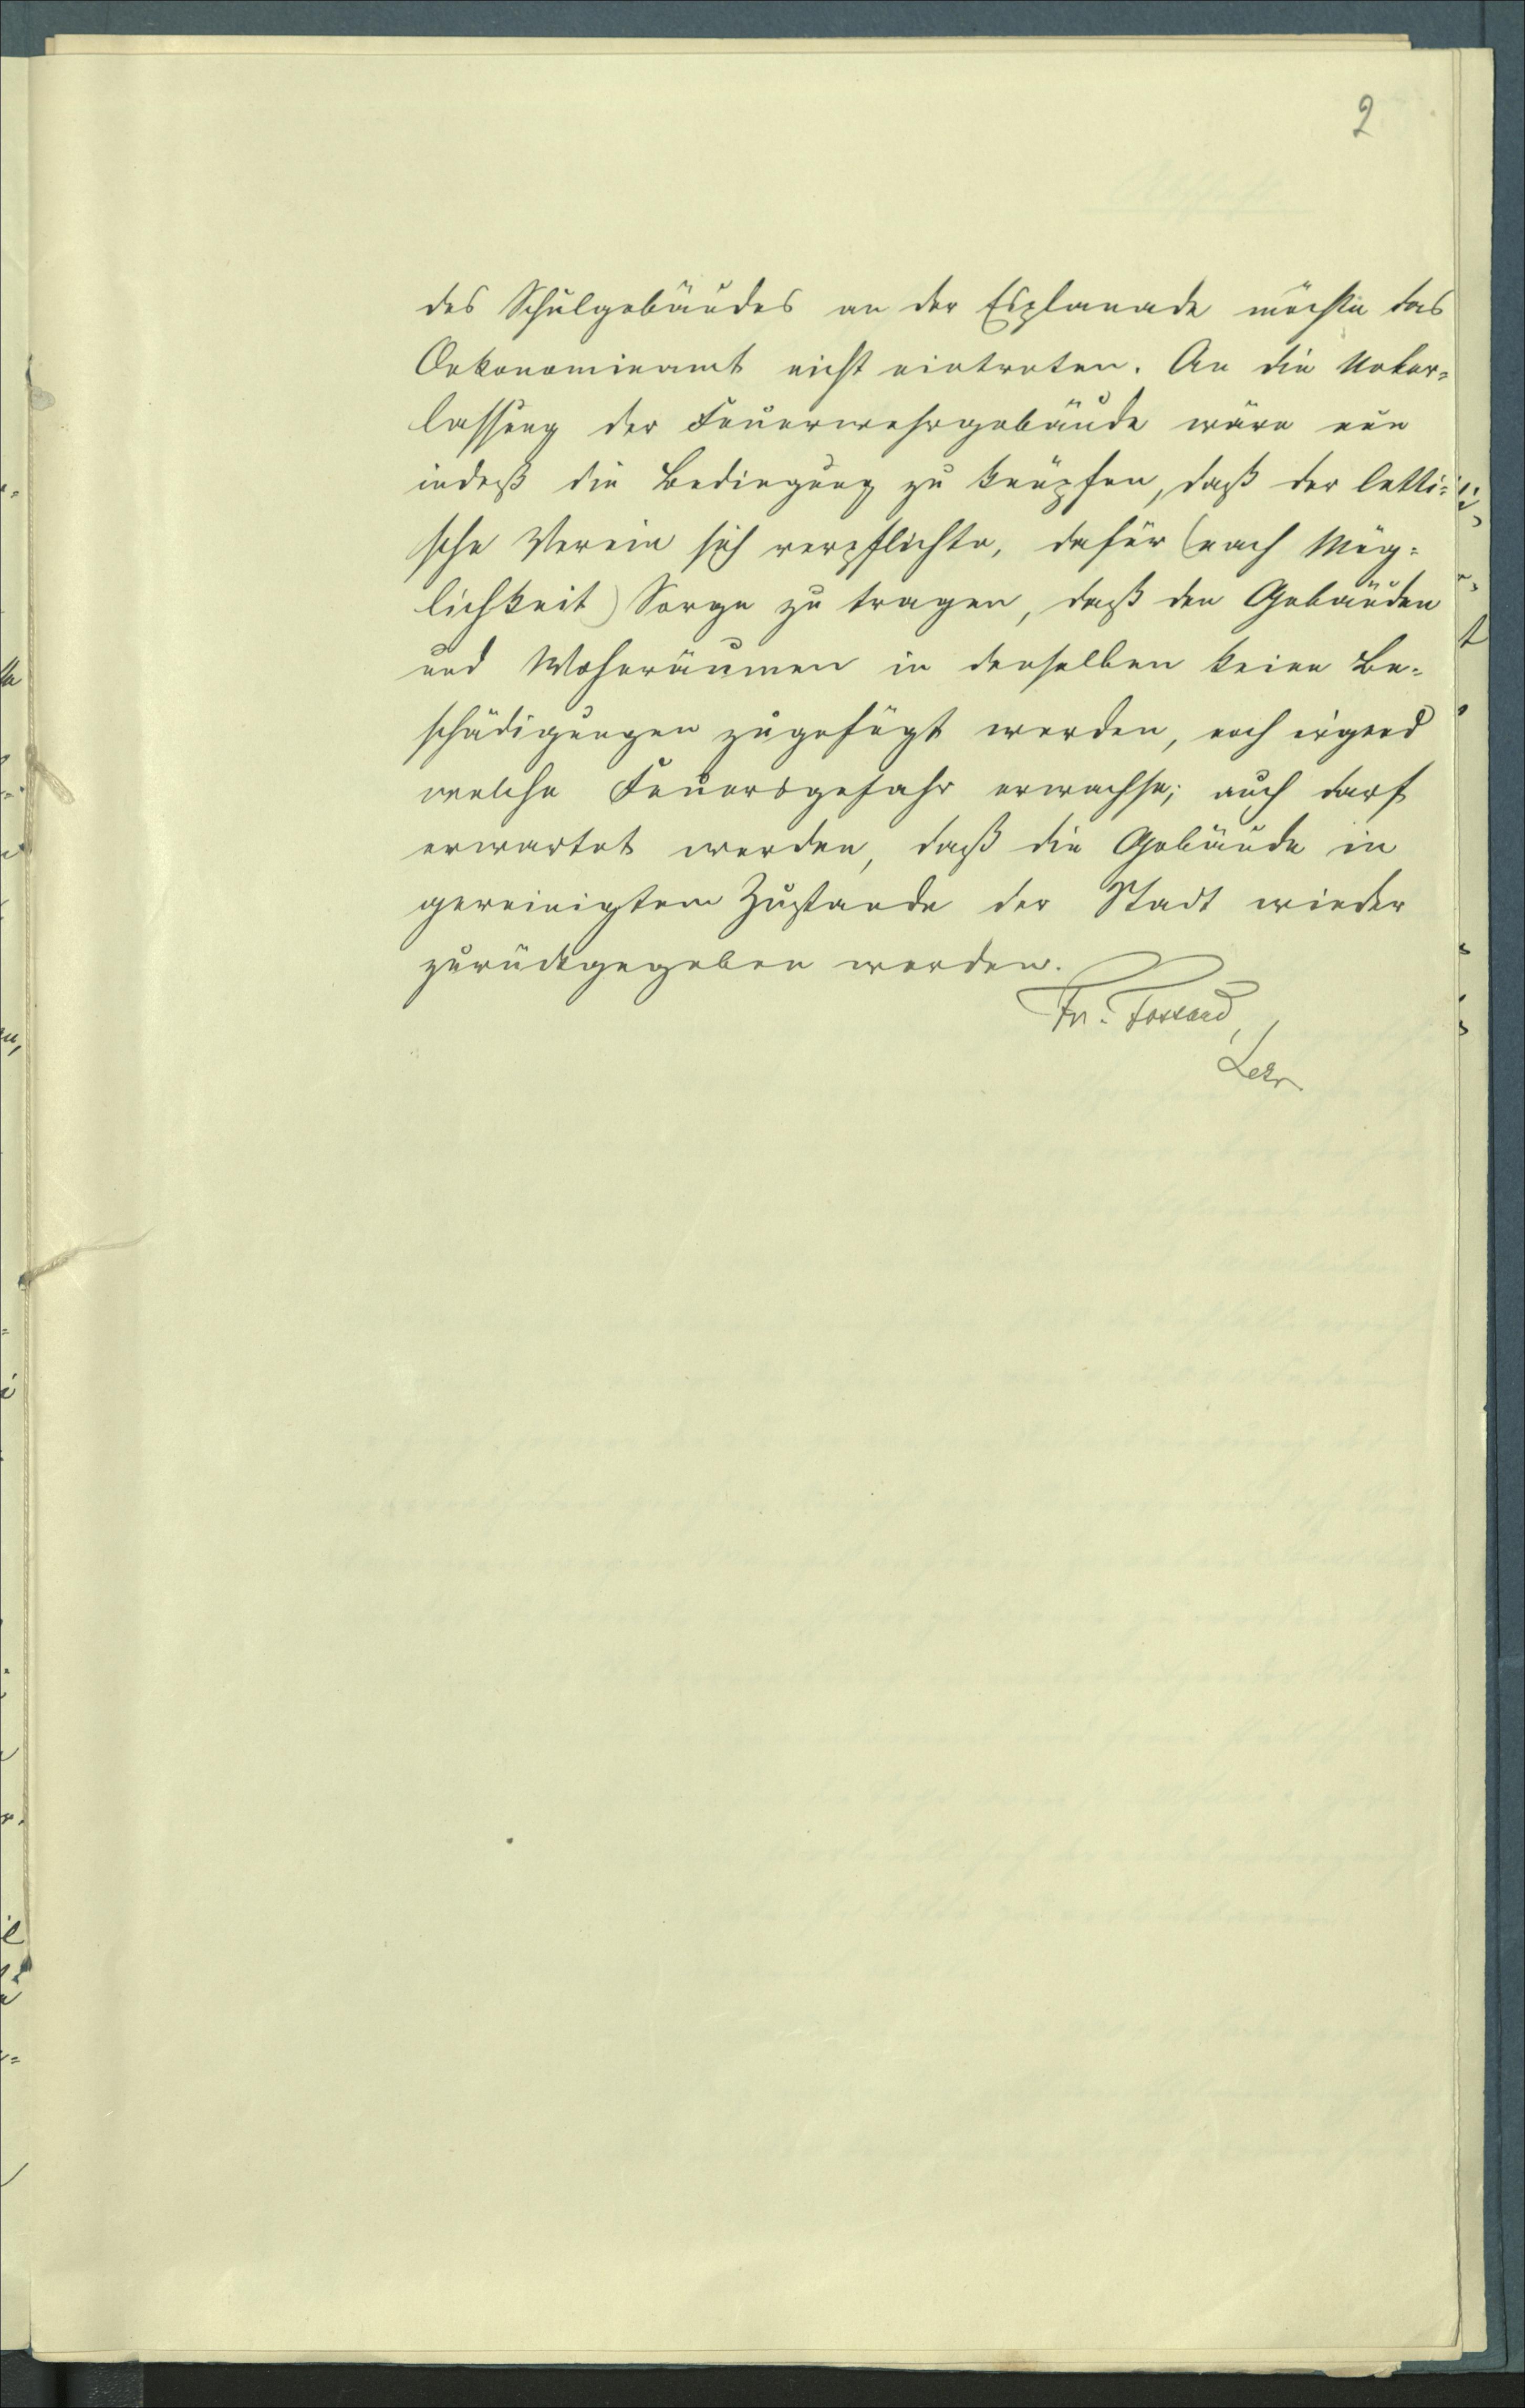 2
des Schulgebäudes an der Esplanade möchte das
Oekonomieamt nicht eintreten. An die Ueber-
lassung der Feuerwehrgebäude wäre nun
indeß die Bedingung zu knüpfen, daß der letti-
sche Verein sich verpflichte, dafür (nach Mög-
lichkeit) Sorge zu tragen, daß den Gebäuden
und Wohnräumen in denselben keine Be-
schädigungen zugefügt werden, noch irgend
welche Feuersgefahr erwachse; auch darf
erwartet werden, daß die Gebäude in
gereinigtem Zustande der Stadt wieder
zurückgegeben werden.
Fr.